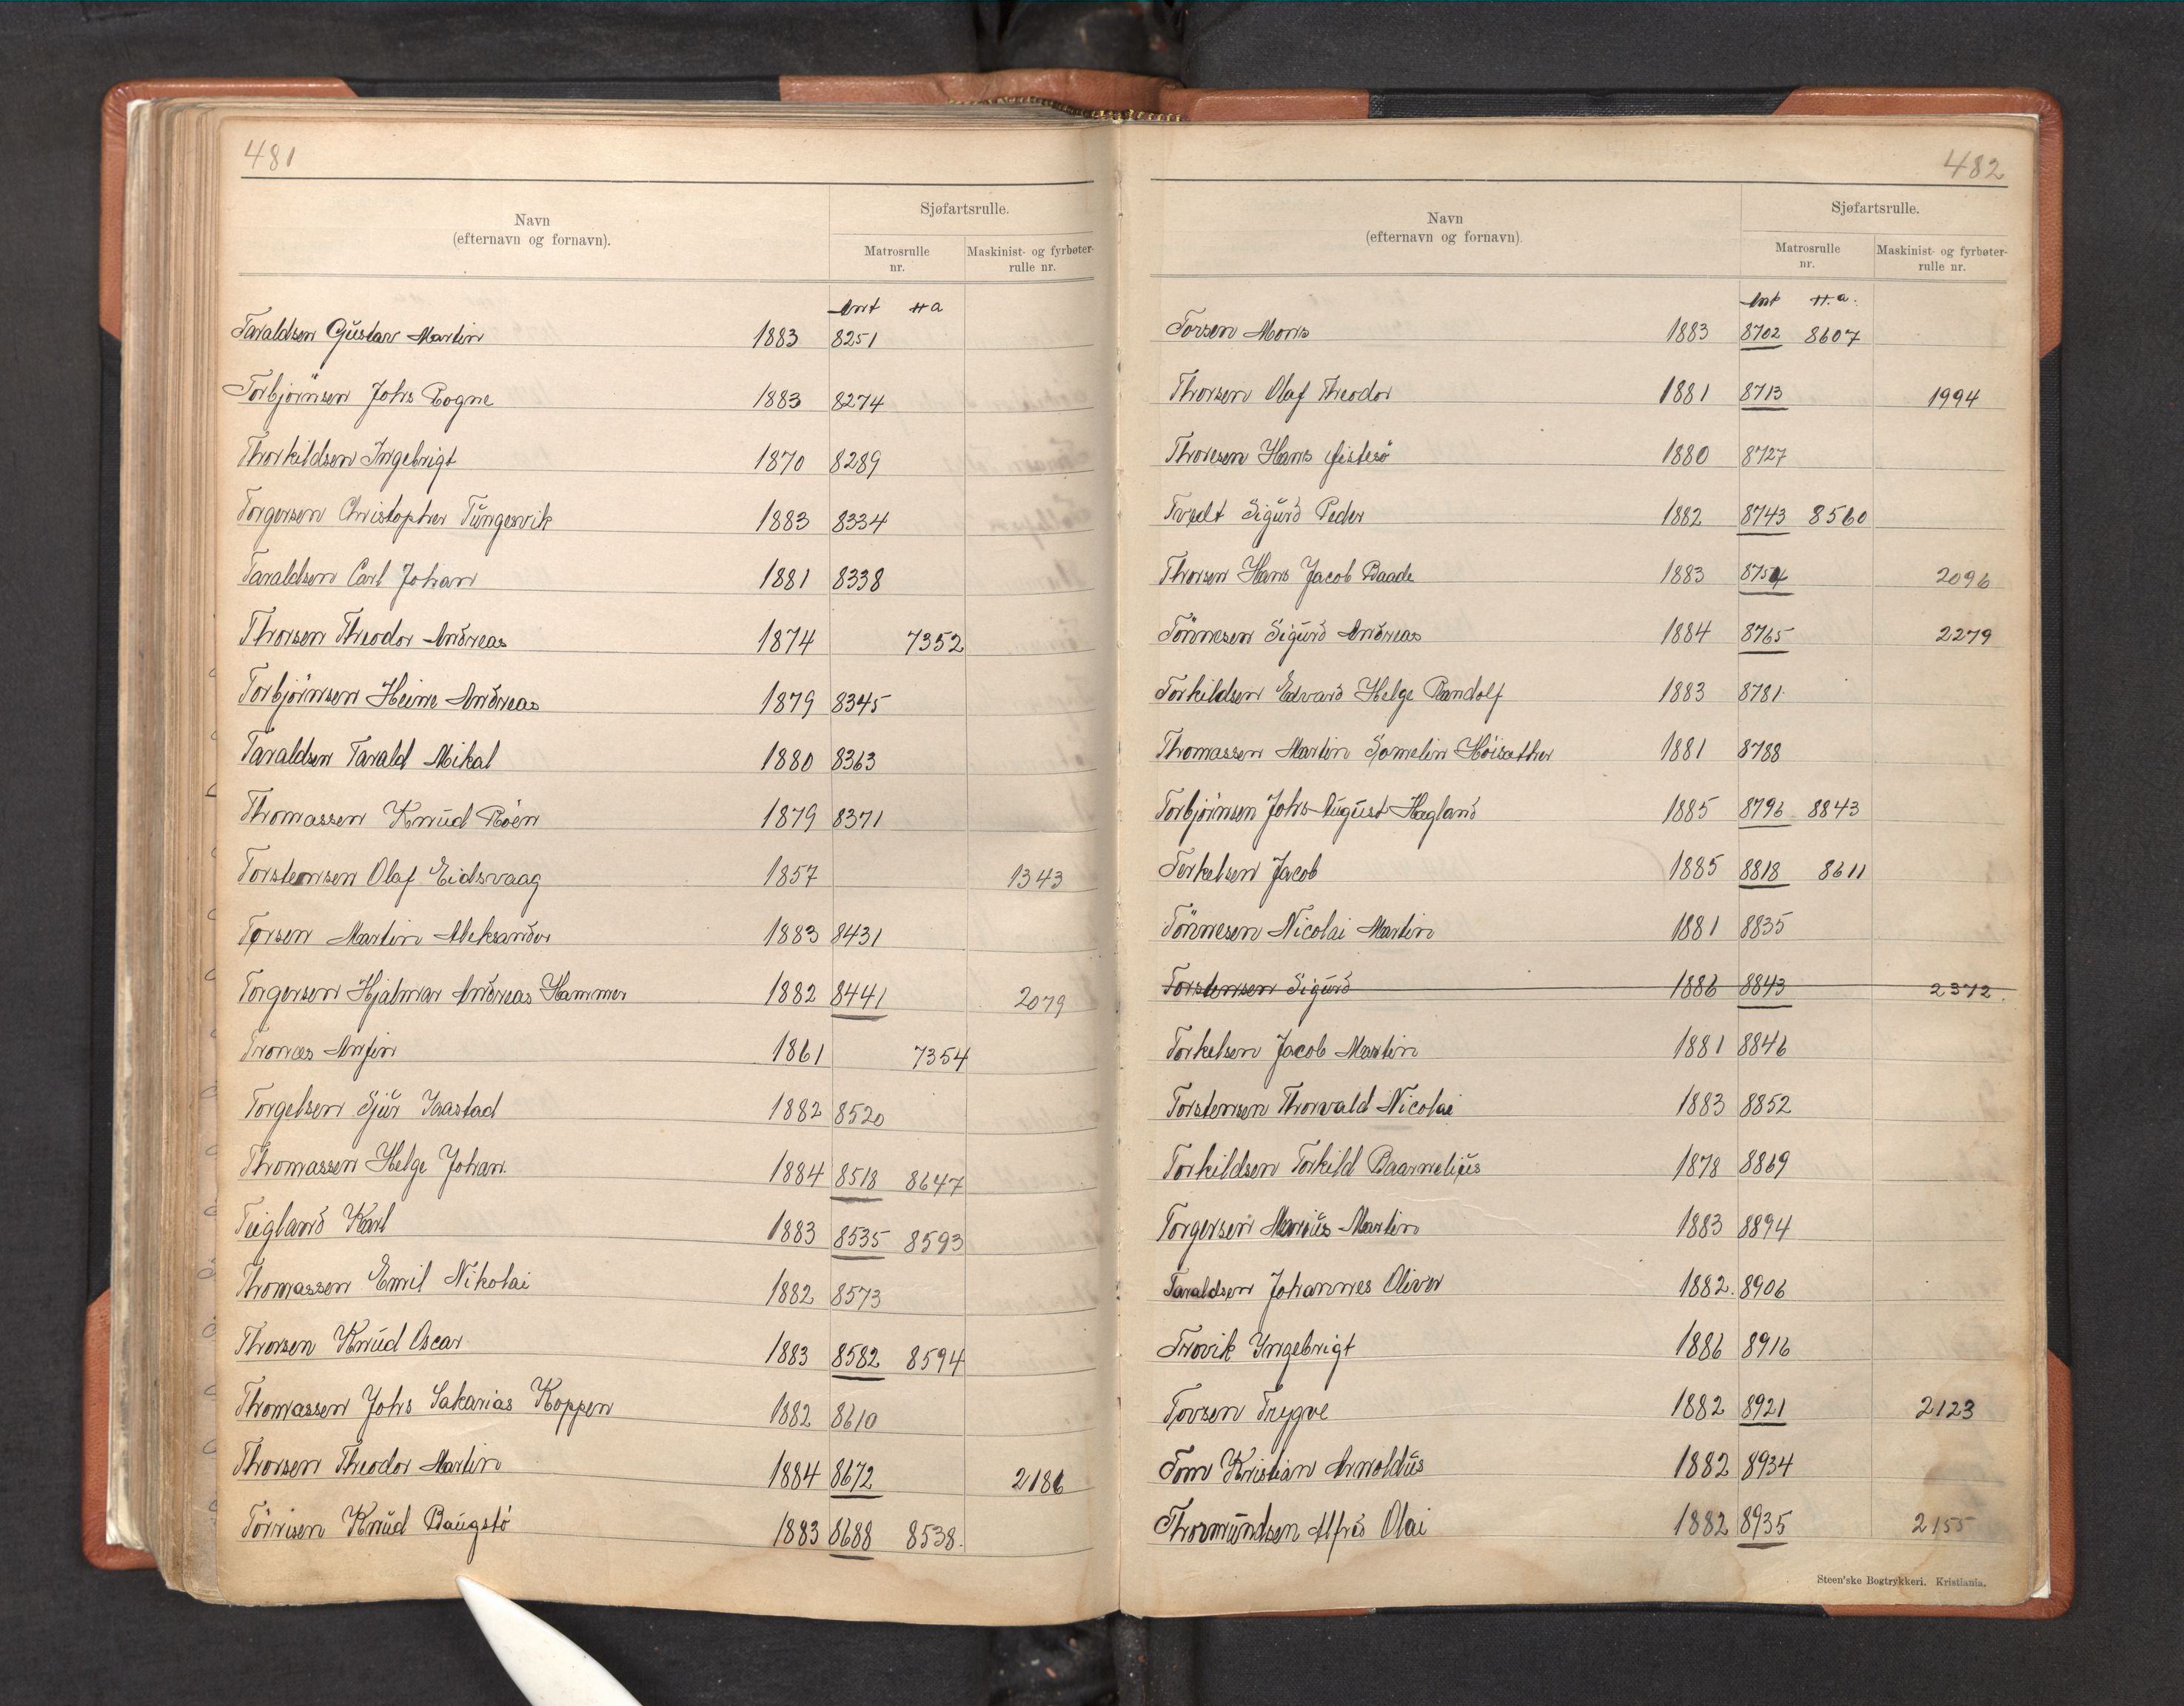 481
Navn
(efternavn og fornavn).
Sjøfartsrulle.
Matrosrulle nr.
Maskinist- og fyrbøter-rulle nr.
Ant H a
Taraldsen Gustav Martin 1883 8251
Torbjörnsen Johs Rogne 1883 8274
Thorkildsen Ingebrigt 1870 8289
Torgersen Christopher Tungesvik 1883 8334
Taraldsen Carl Johan 1881 8338
Thorsen Theodor Andreas 1874 7352
Torbjörnsen Heine Andreas 1879 8345
Taraldsen Tarald Mikal 1880 8363
Thomassen Knud Röen 1879 8371
Torstensen Olaf Eidsvaag 1857 1343
Torsen Martin Aleksander 1883 8431
Torgersen Hjalmar Andreas Hammer 1882 8441 2079
Tronæs Anfin 1861 7354
Torgelsen Sjur Jaastad 1882 8520
Thomassen Helge Johan. 1884 8518 8647
Teigland Karl 1883 8535 8593
Thomassen Emil Nikolai 1882 8573
Thorsen Knud Oscar 1883 8582 8594
Thomassen Johs Sakarias Koppen 1882 8610
Thorsen Theodor Martin 1884 8672 2186
Törrisen Knud Baugstö 1883 8688 8538.
482
Navn
(efternavn og fornavn).
Sjøfartsrulle.
Matrosrulle nr.
Maskinist- og fyrbøter-rulle nr.
Ant H. a.
Torsen Mons 1883 8702 8607
Thorsen Olaf Theodor 1881 8713 1994
Thoresen Hans 1880 8727
Tvedt Sigurd Peder 1882 8743 8560
Thorsen Hans Jacob Baade 1883 8754 2096
Tönnesen Sigurd Andreas 1884 8765 2279
Torkildsen Edvard Helge Randolf 1883 8781
Thomassen Martin Somelin Höisæther 1881 8788
Torbjörnsen Johs August Hagland 1885 8796 8843
Terkelsen Jacob 1885 8818 8611
Tönnesen Nicolai Martin 1881 8835
Torstensen Sigurd 1886 8843 2372.
Torkelsen Jacob Martin 1881 8846
Torstensen Thorvald Nicolai 1883 8852
Torkildsen Torkild 1878 8869
Torgersen Marius Martin 1883 8894
Taraldsen Johannes Oliver 1882. 8906
Trovik Yngebrigt 1886 8916
Tovsen Trygve 1882 8921 2123
Tom Kristian Arnoldus 1882 8934
Thormundsen Alfred Olai 1882 8935 2155
Steen'ske Bogtrykkeri. Kristiania.